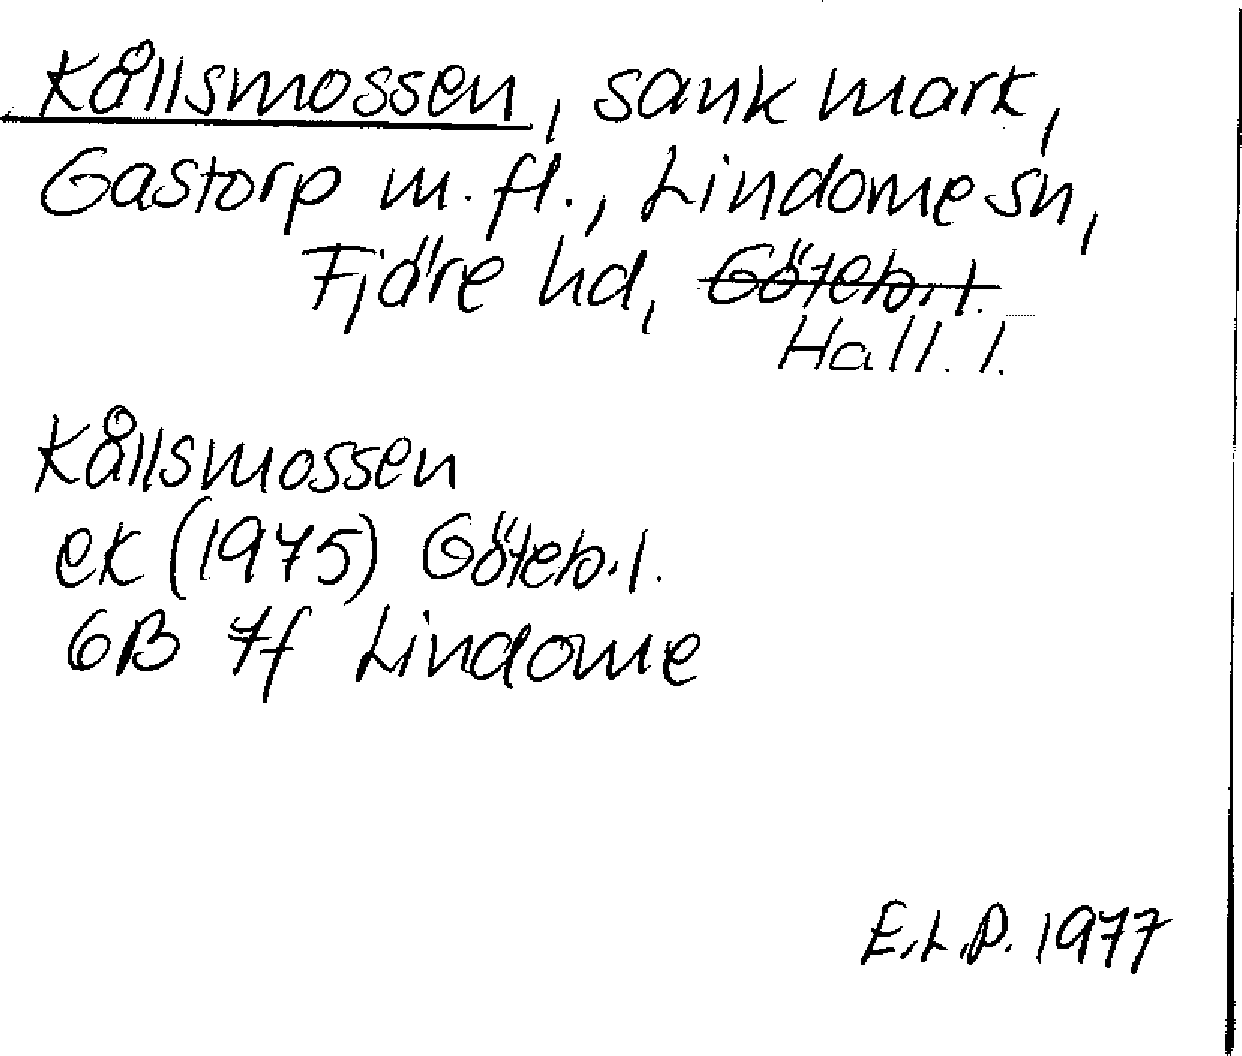 Kållsmossen, sank mark,
Gastorp m.fl., Lindome sn,
Fjäre hd, Göteb.l.
Hall.l.
Kållsmossen
ek (1975) Göteb.l.
6B 7f Lindome
E.L.P. 1977